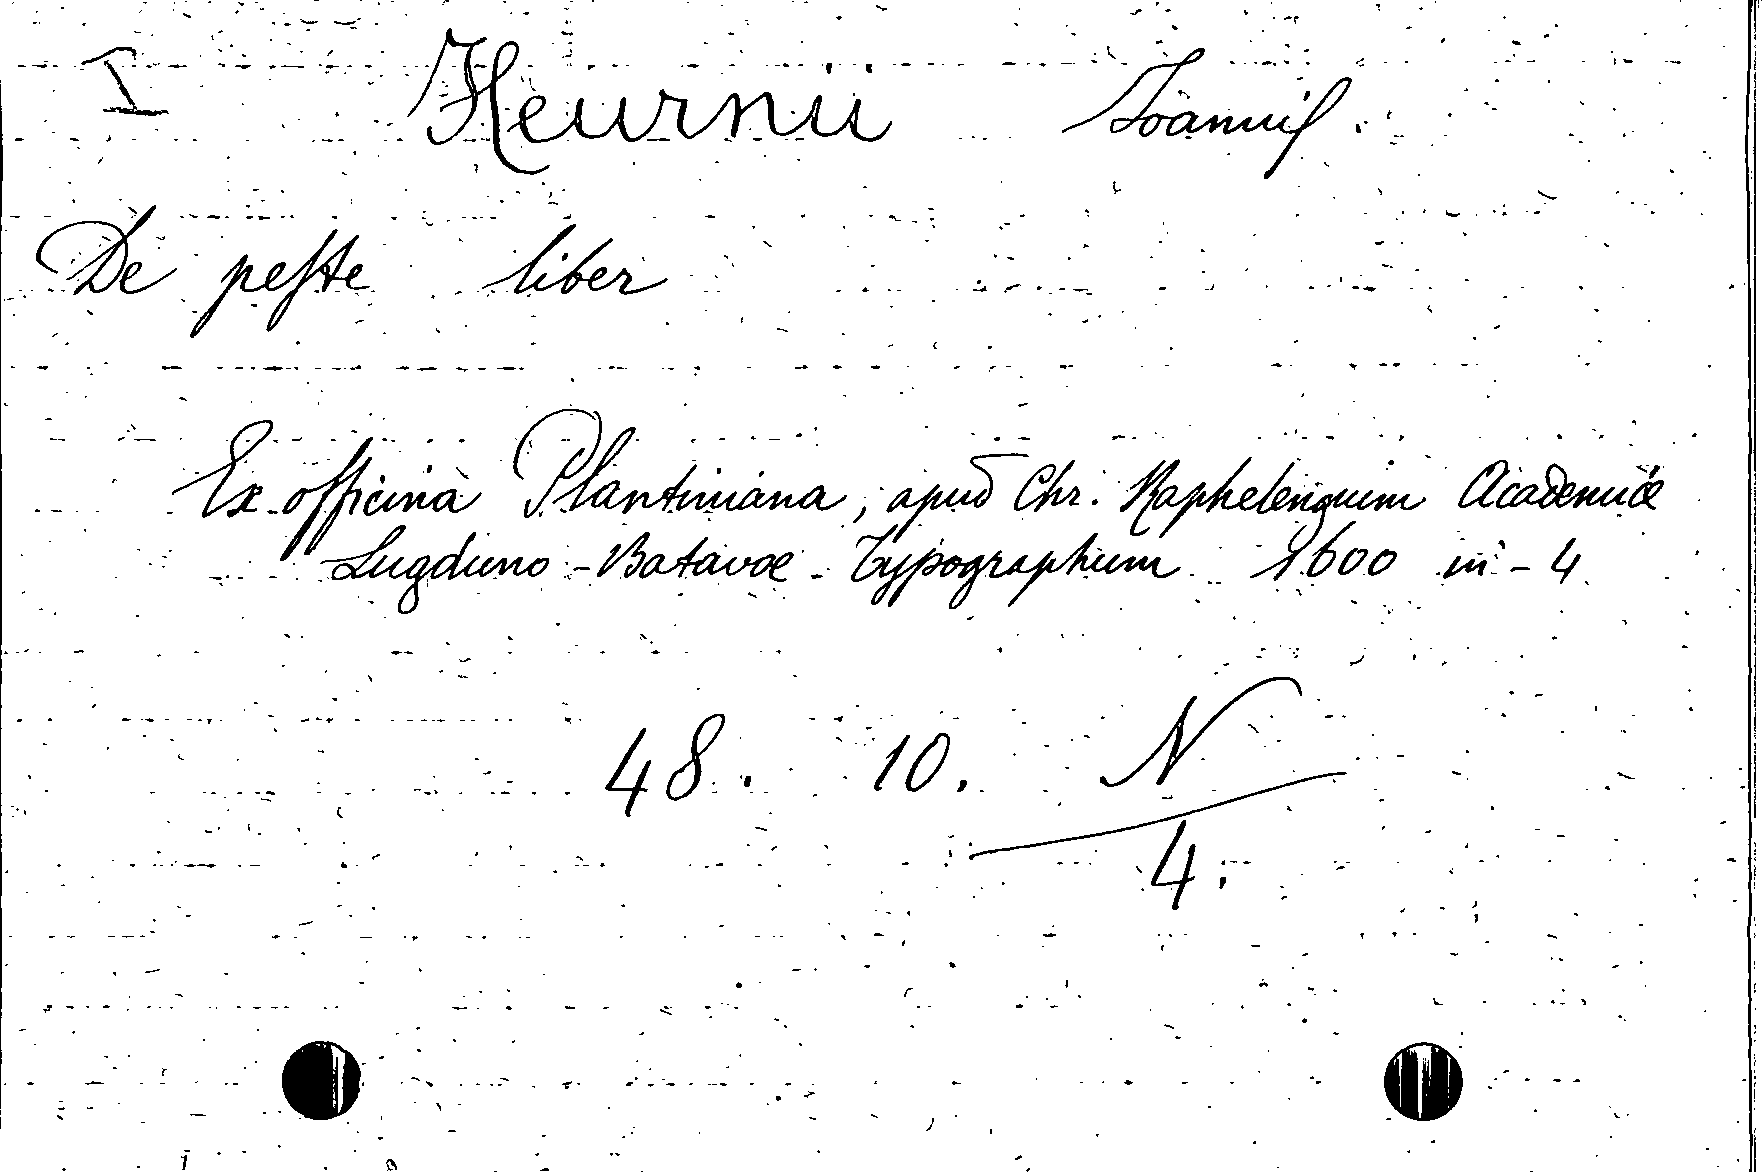 I Heurnii Joannis.
De peste liber
Ex officina Plantiniana, apud Chr. Raphelengium Academiæ
Lugduno-Batavæ Typographum 1600 in-4
48. 10. N
4.